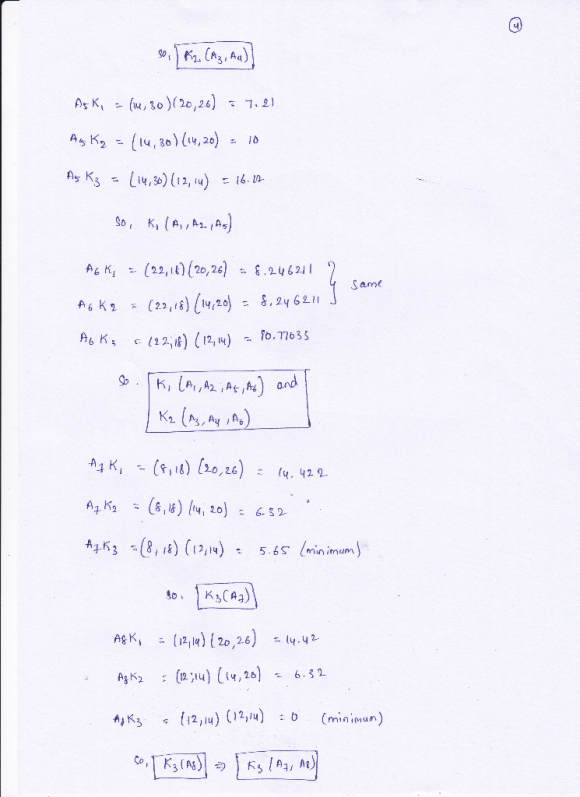 4
So, K2 (A3, A4)
A5 K1 = (14,30)(20,26) = 7.21
A5 K2 = (14,30)(14,20) = 10
A5 K3 = (14,30)(12,14) = 16.12
So, K1 (A1, A2, A5)
A6 K1 = (22,18)(20,26) = 8.246211
A6 K2 = (22,18)(14,20) = 8.246211 } same
A6 K3 = (22,18)(12,14) = 10.77033
So. K1 (A1, A2, A5, A6) and
K2 (A3, A4, A6)
A7 K1 = (8,18)(20,26) = 14.422
A7 K2 = (8,18)(14,20) = 6.32
A7 K3 = (8,18)(12,14) = 5.65 (minimum)
So. K3(A7)
A8 K1 = (12,14)(20,26) = 14.42
A8 K2 = (12,14)(14,20) = 6.32
A8 K3 = (12,14)(12,14) = 0 (minimum)
So, K3(A8) ⇒ K3 (A7, A8)